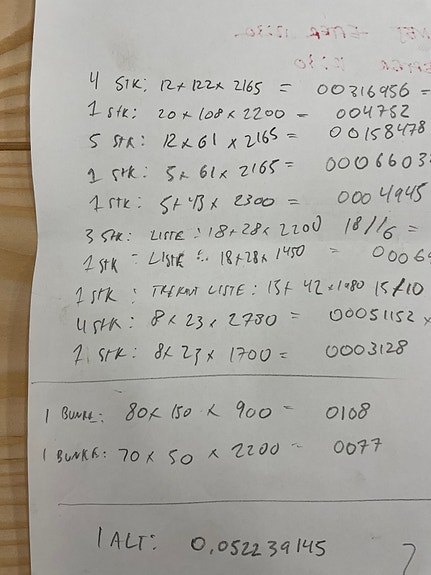 4 STK: 12 x 122 x 2165 = 00316956 =
1 STK: 20 x 108 x 2200 = 004752
5 STK: 12 x 61 x 2165 = 00158478
1 STK: 5 x 61 x 2165 = 0006603
1 STK: 5 x 43 x 2300 = 0004945
3 STK: LISTE: 18 x 28 x 2200 18//6 =
1 STK - LISTE: 18 x 28 x 1450 = 0006
1 STK: LISTE: 15 x 42 x 1980 15/10
4 STK: 8 x 23 x 2780 = 00051152 x
1 STK: 8 x 23 x 1700 = 0003128
1 BUNKE: 80 x 150 x 900 = 0108
1 BUNKE: 70 x 50 x 2200 = 0077
I ALT: 0,052239145